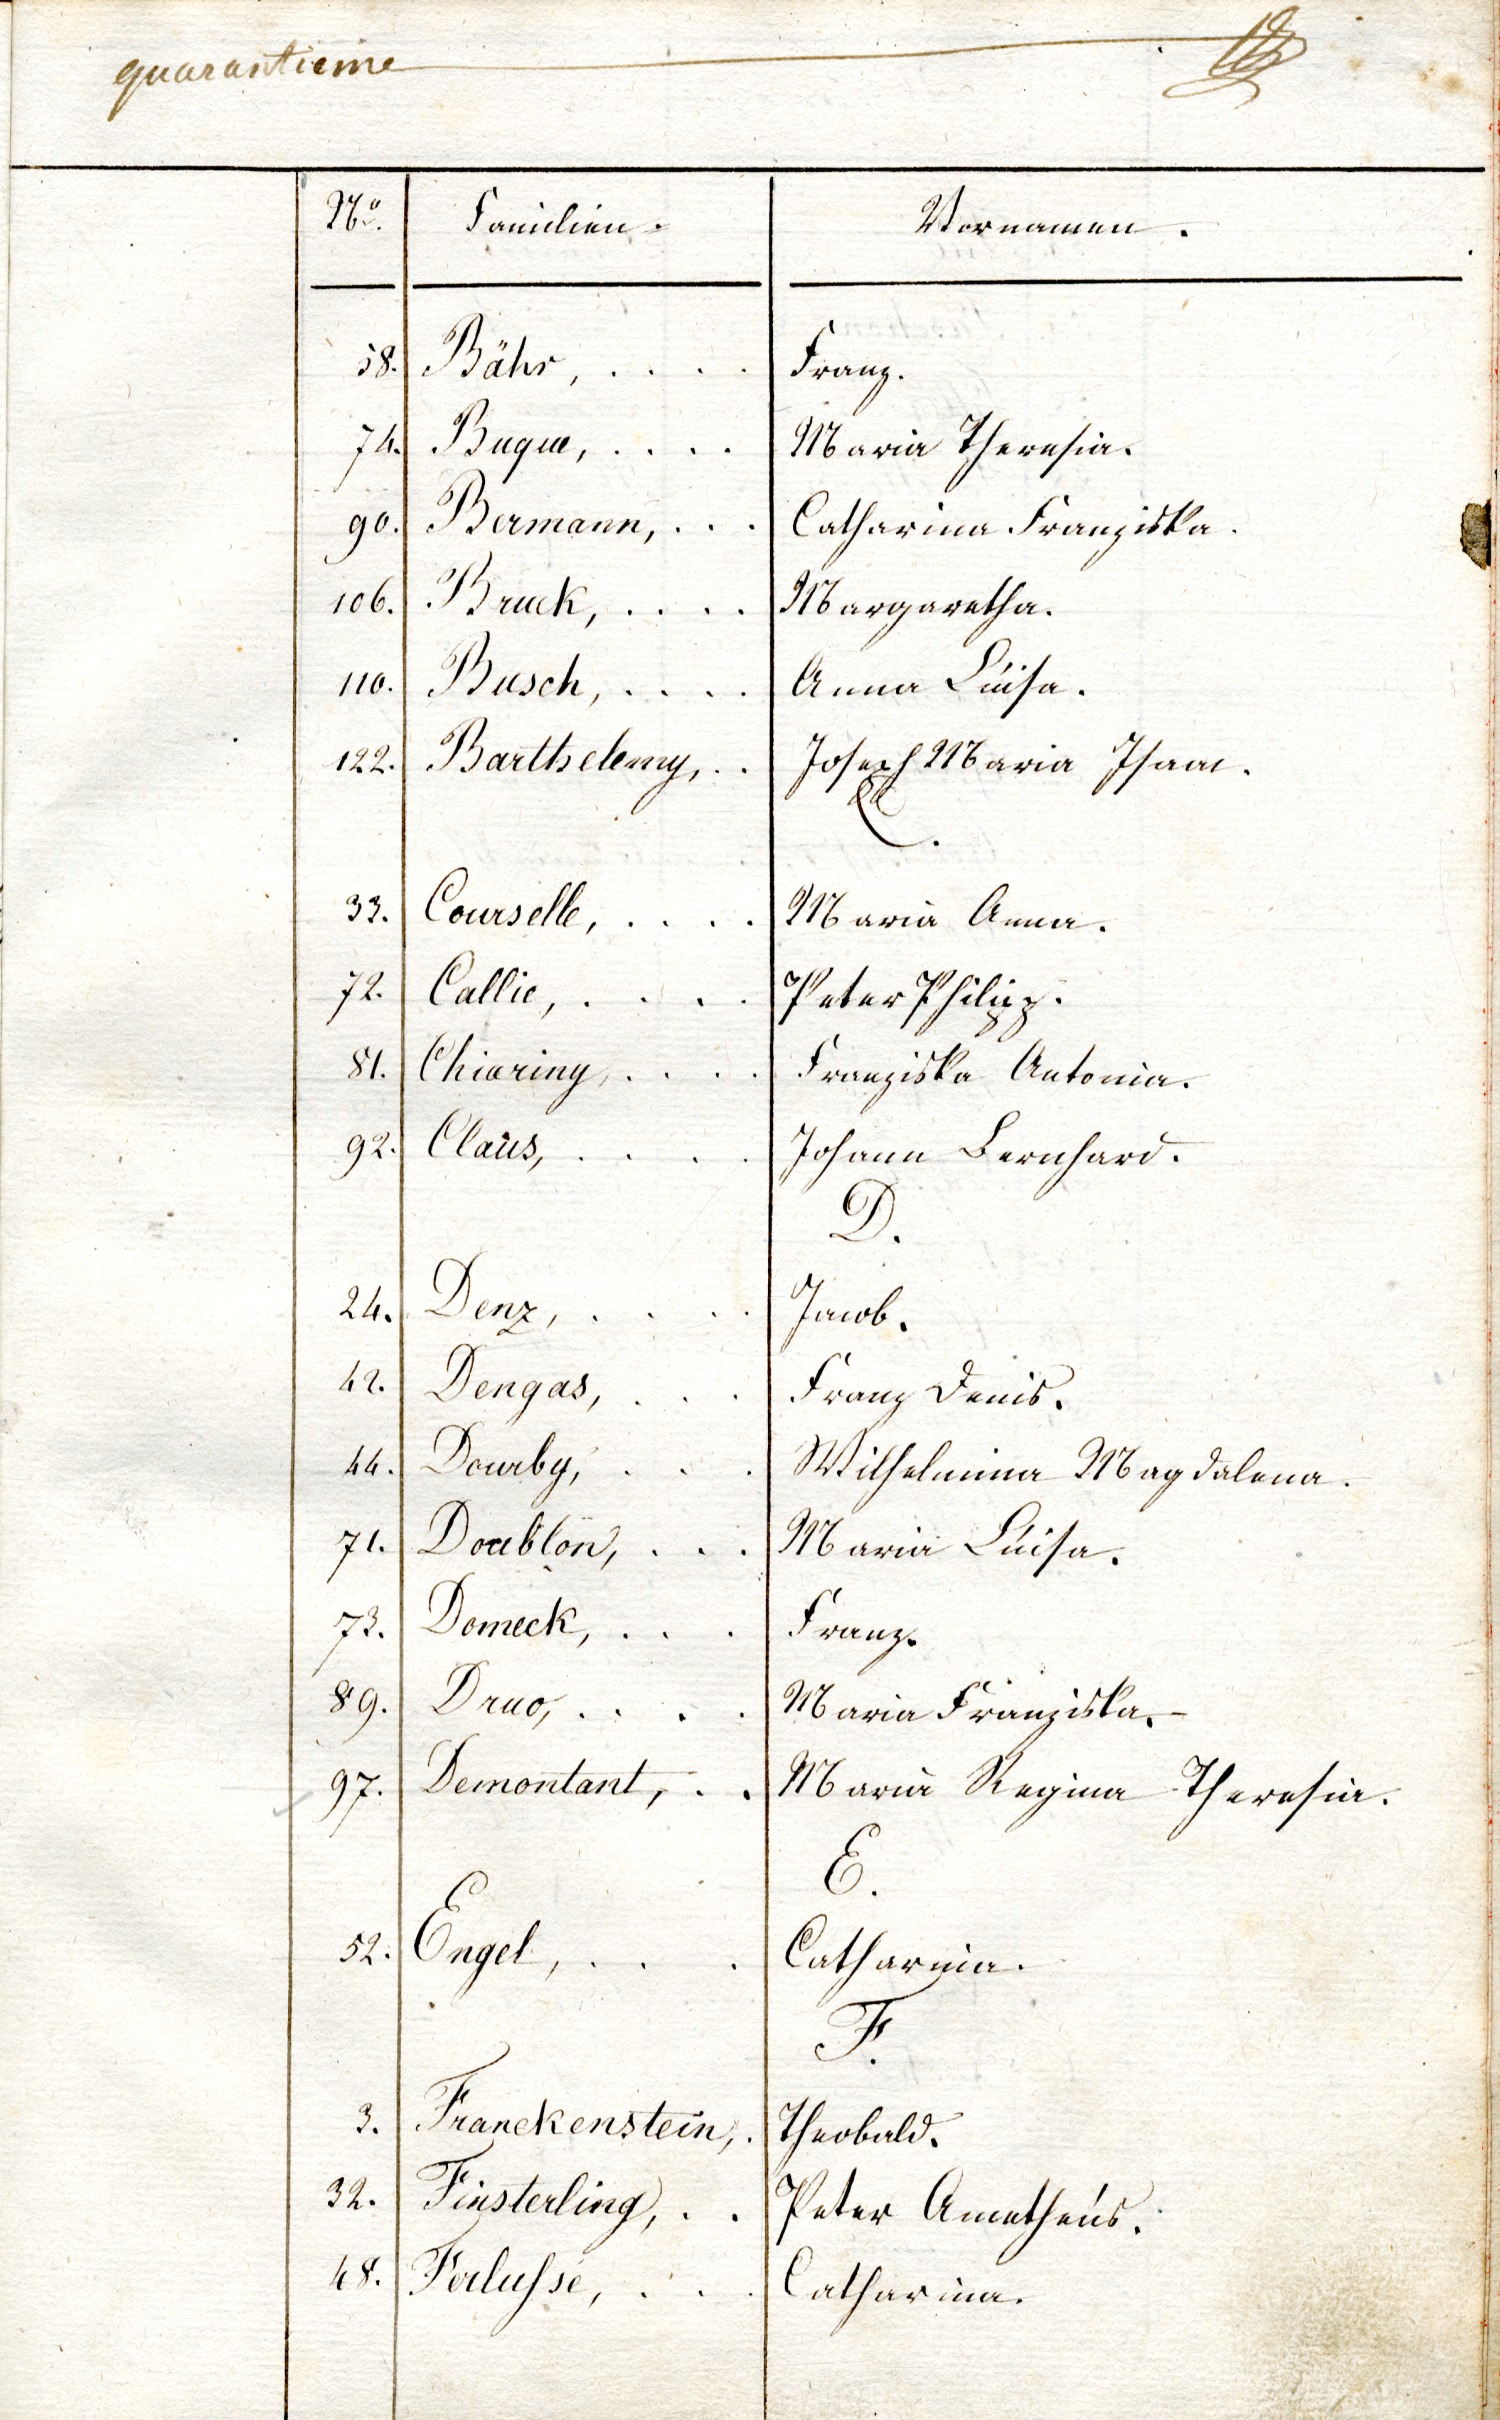 quarantieme
No. Familien- Vornamen.
58. Bähr, . . . . Franz.
74. Buque, . . . . Maria Theresia.
90. Bermann, . . . Catharina Franziska.
106. Bruck, . . . . Margaretha.
110. Busch, . . . . Anna Luisa.
122. Barthelemy, . . Joseph Maria Isaac.
C.
33. Courselle, . . . . Maria Anna.
72. Callie, . . . . Peter Philipp.
81. Chiariny, . . . . Franziska Antonia.
92. Claus, . . . . Johann Bernhard.
D.
24. Denz, . . . . Jacob.
42. Dengas, . . . Franz Denis.
44. Dourby, . . . Wilhelmina Magdalena.
71. Doublon, . . . Maria Luisa.
73. Domeck, . . . Franz.
89. Druo, . . . . Maria Franziska.
97. Demontant, . . Maria Regina Theresia.
E.
52. Engel, . . . Catharina.
F.
3. Franckenstein, . Theobald.
32. Finsterling, . . Peter Amatheus.
48. Catharina.